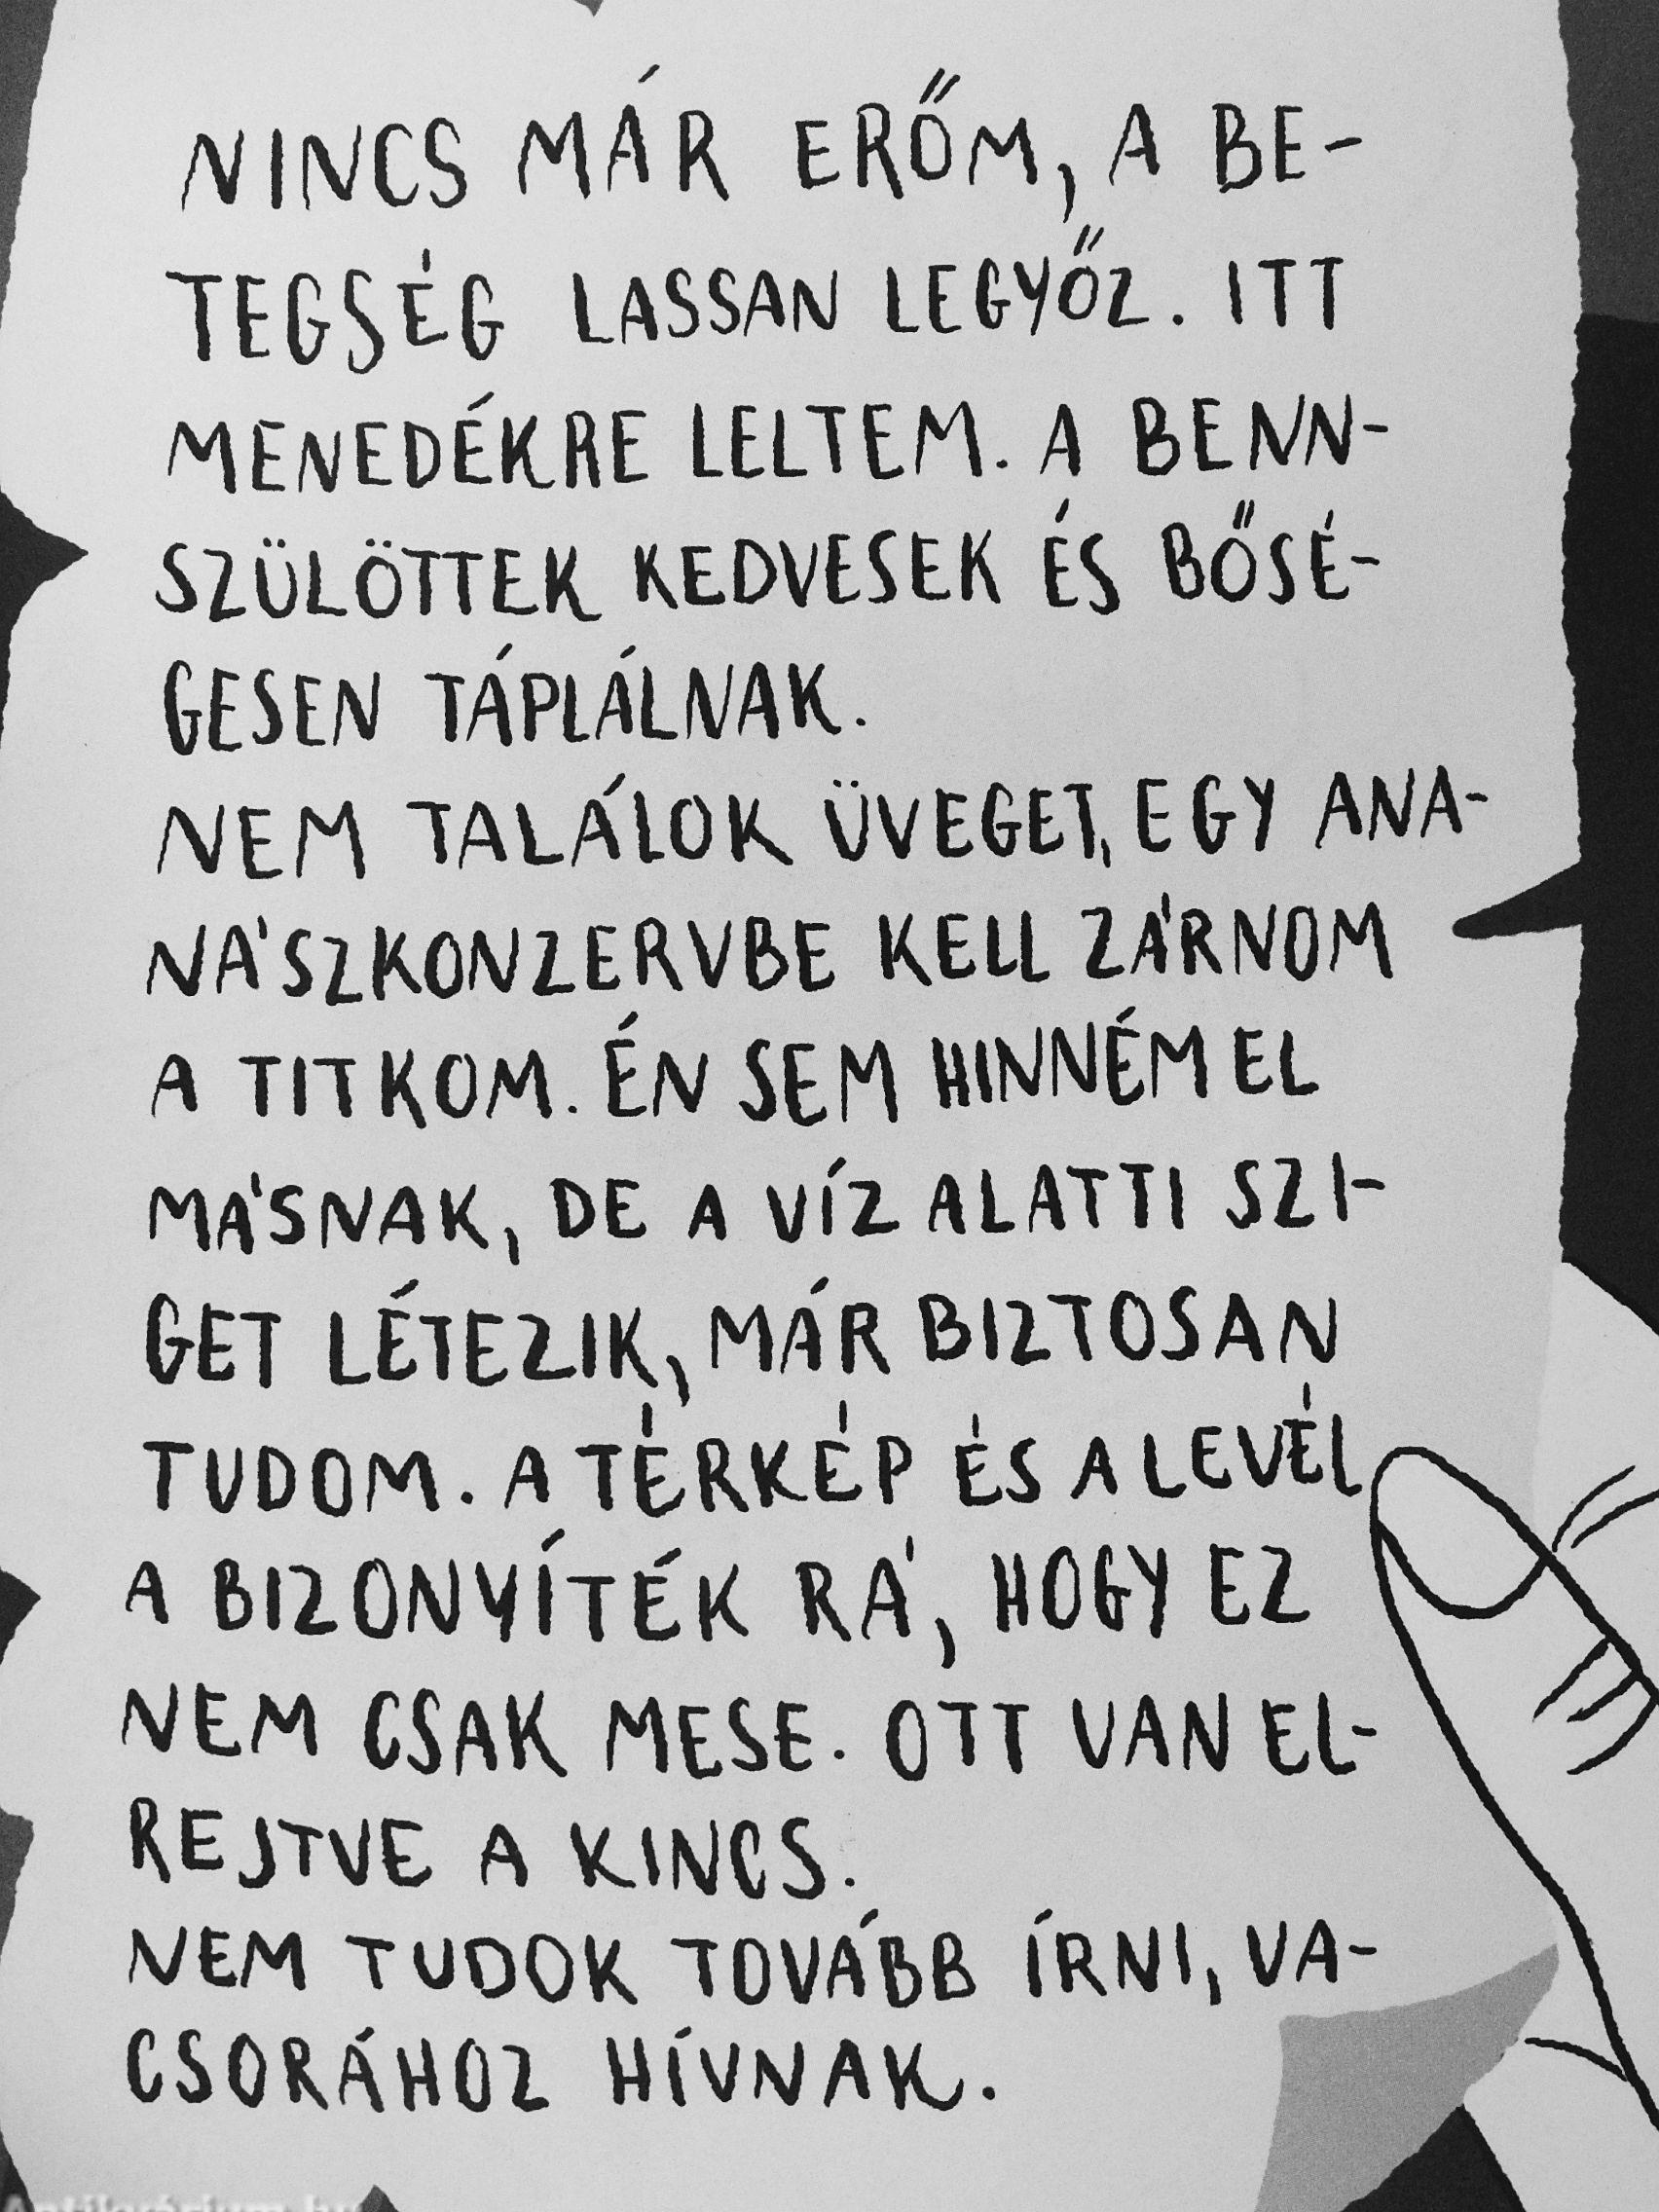 NINCS MÁR ERŐM, A BE-
TEGSÉG LASSAN LEGYŐZ. ITT
MENEDÉKRE LELTEM. A BENN-
SZÜLÖTTEK KEDVESEK ÉS BŐSÉ-
GESEN TÁPLÁLNAK.
NEM TALÁLOK ÜVEGET, EGY ANA-
NÁSZKONZERVBE KELL ZÁRNOM
A TITKOM. ÉN SEM HINNÉM EL
MÁSNAK, DE A VÍZ ALATTI SZI-
GET LÉTEZIK, MÁR BIZTOSAN
TUDOM. A TÉRKÉP ÉS A LEVÉL
A BIZONYÍTÉK RÁ, HOGY EZ
NEM CSAK MESE. OTT VAN EL-
REJTVE A KINCS.
NEM TUDOK TOVÁBB ÍRNI, VA-
CSORÁHOZ HÍVNAK.